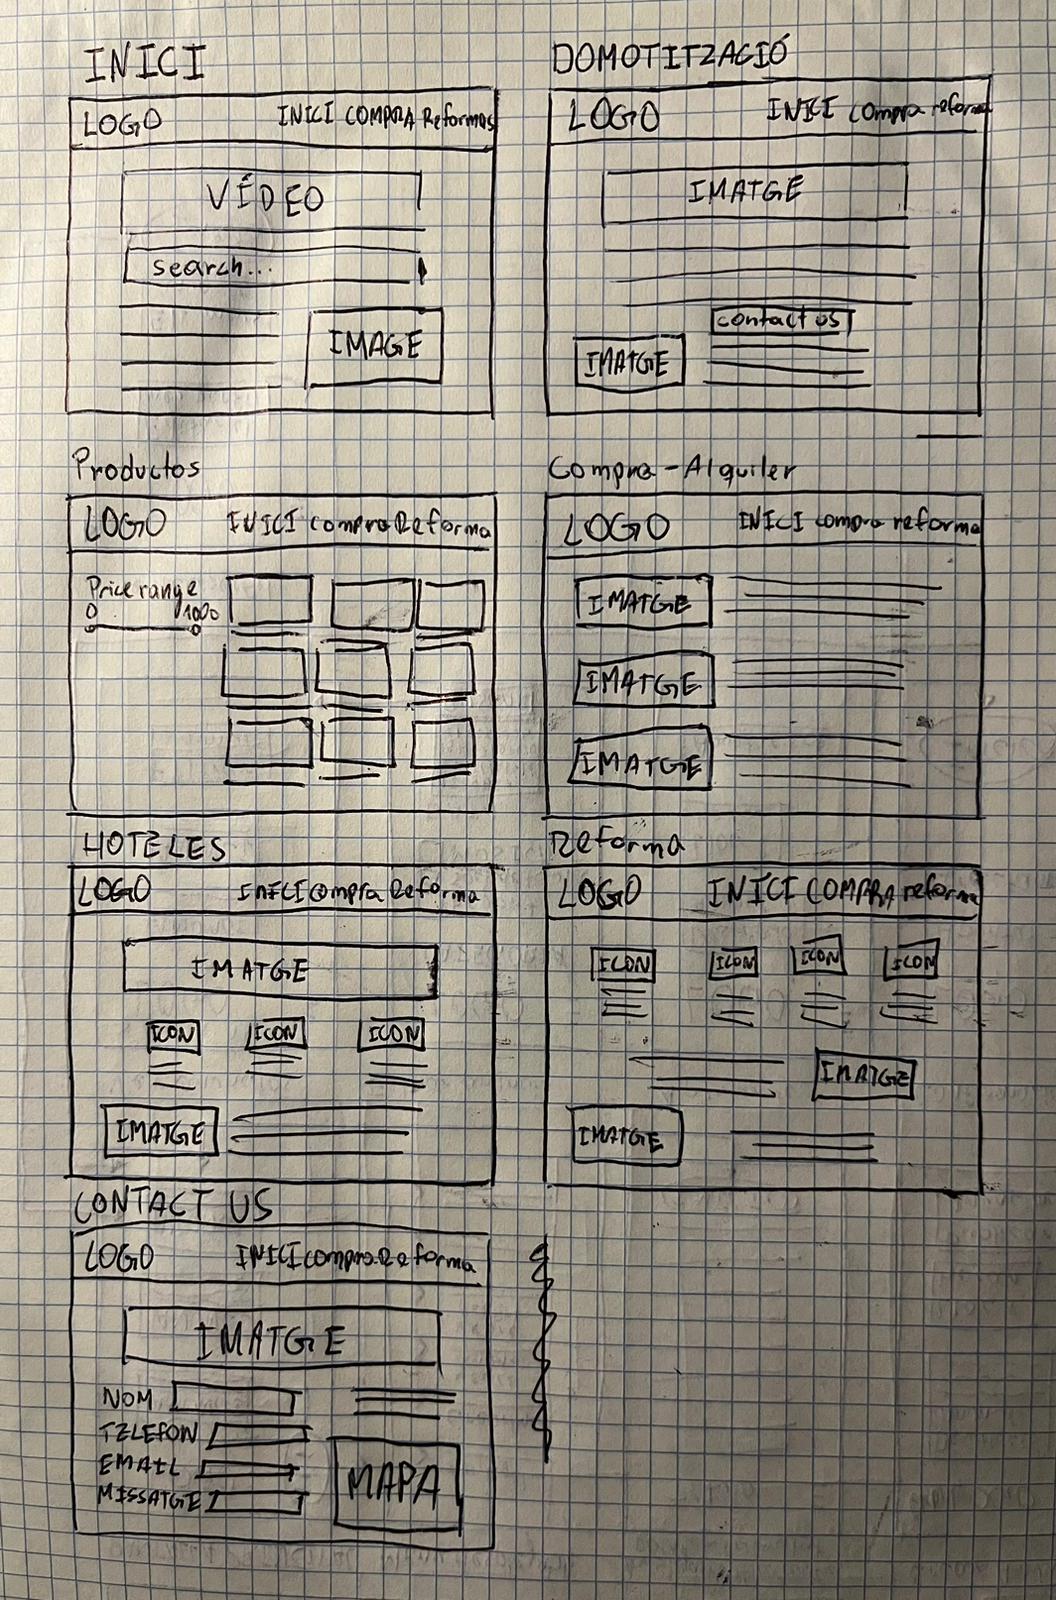 INICI
LOGO INICI COMPRA Reformas
VÍDEO
search...
IMAGE
DOMOTITZACIÓ
LOGO INICI compra reforma
IMATGE
contact us
IMATGE
Productos
LOGO INICI compra Reforma
Price range
0 1000
Compra-Alquiler
LOGO INICI compra reforma
IMATGE
IMATGE
IMATGE
HOTELES
LOGO INICI compra Reforma
IMATGE
ICON ICON ICON
IMATGE
Reforma
LOGO INICI COMPRA reforma
ICON ICON ICON ICON
IMATGE
IMATGE
CONTACT US
LOGO INICI compra Reforma
IMATGE
NOM
TELEFON
EMAIL
MISSATGE
MAPA